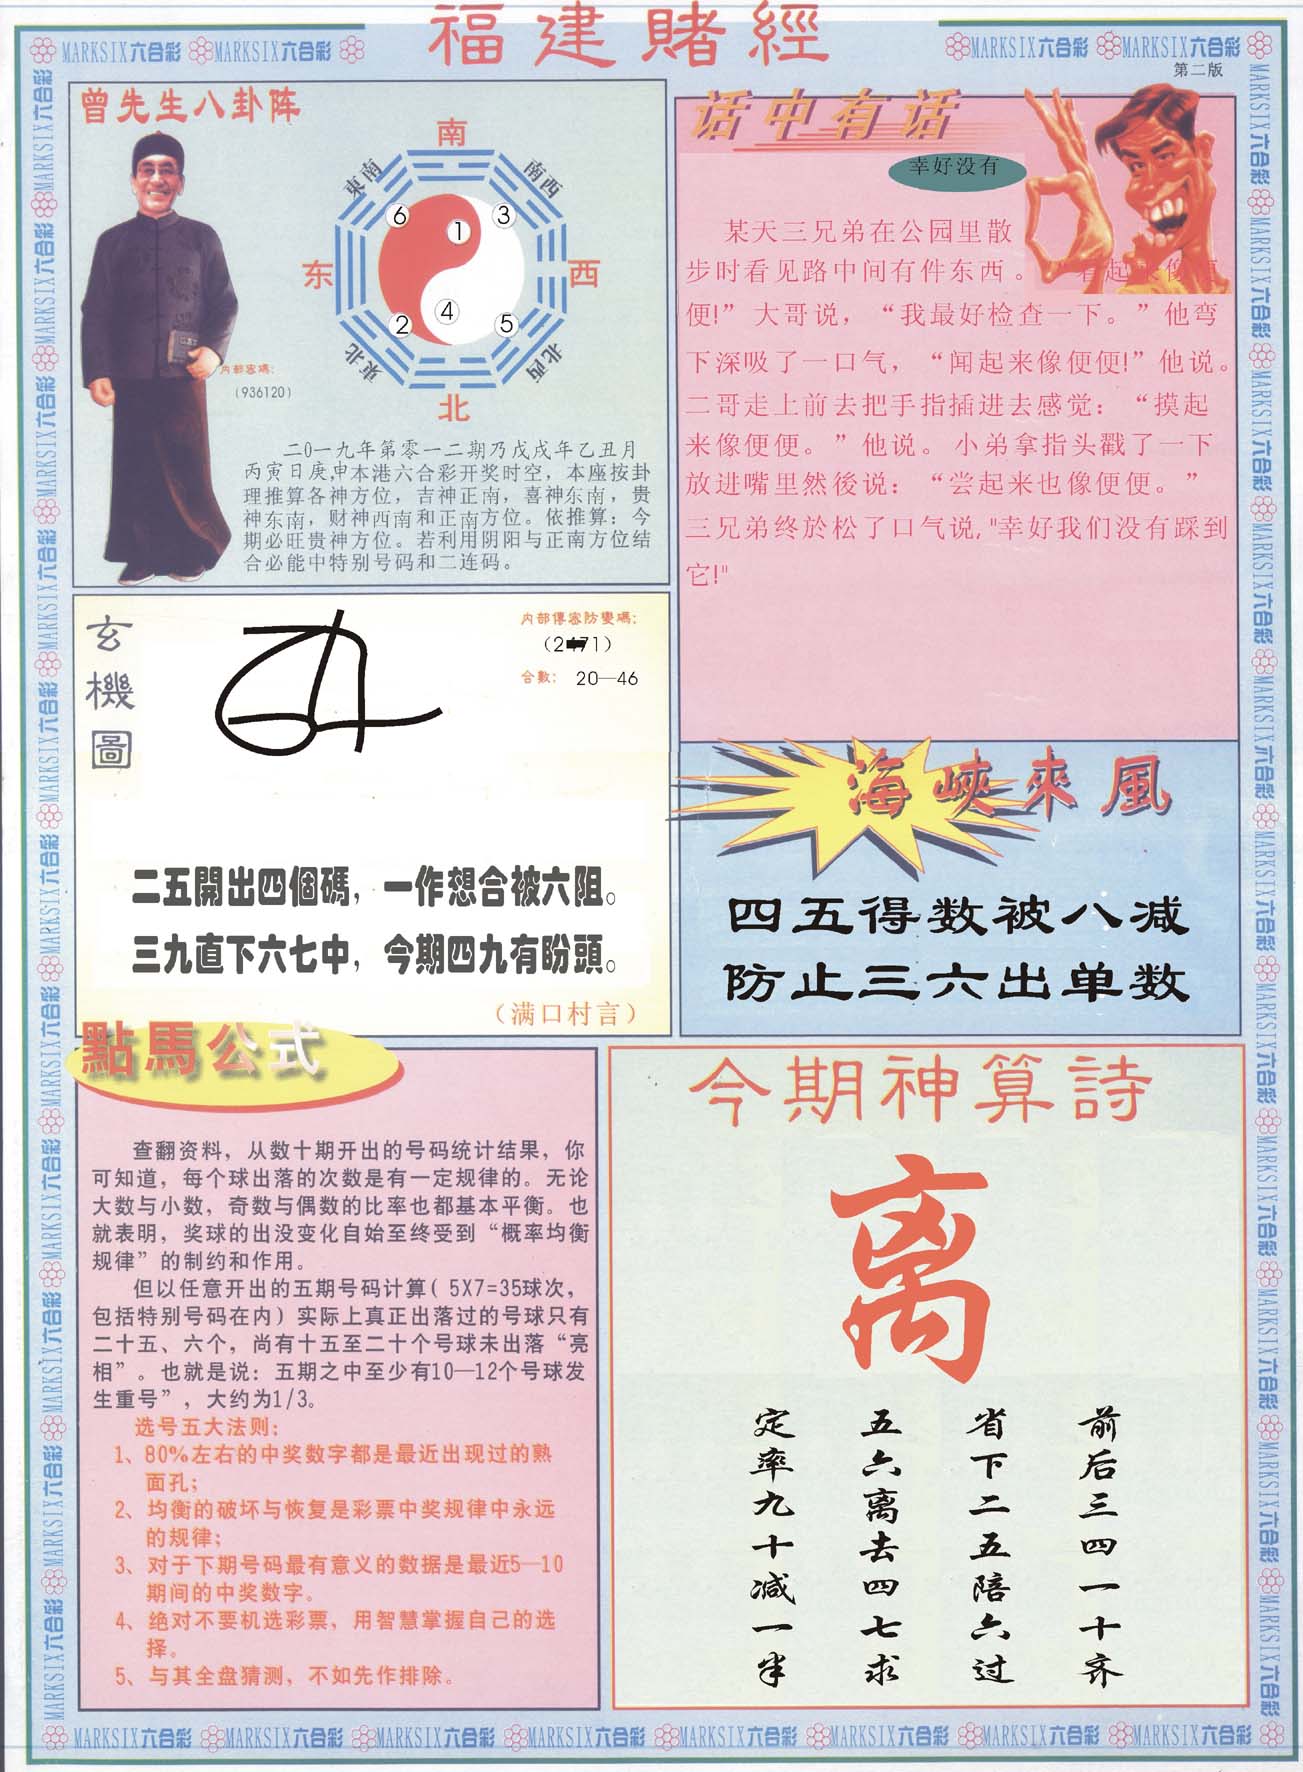 福建賭經
MARKSIX六合彩 MARKSIX六合彩
MARKSIX六合彩 MARKSIX六合彩
第二版
曾先生八卦阵
南
東南
南西
6
1
3
东
西
2
4
5
東北
北西
北
内部密碼：
（936120）
二0一九年第零一二期乃戊戌年乙丑月
丙寅日庚,申本港六合彩开奖时空，本座按卦
理推算各神方位，吉神正南，喜神东南，贵
神东南，财神西南和正南方位。依推算：今
期必旺贵神方位。若利用阴阳与正南方位结
合必能中特别号码和二连码。
话中有话
幸好没有
某天三兄弟在公园里散
步时看见路中间有件东西。“看起来像便
便!”大哥说，“我最好检查一下。”他弯
下深吸了一口气，“闻起来像便便!”他说。
二哥走上前去把手指插进去感觉：“摸起
来像便便。”他说。小弟拿指头戳了一下
放进嘴里然後说：“尝起来也像便便。”
三兄弟终於松了口气说,"幸好我们没有踩到
它!"
玄機圖
内部傳密防變碼：
合數： 20—46
二五開出四個碼，一作想合被六阻。
三九直下六七中，今期四九有盼頭。
（满口村言）
海峽來風
四五得数被八减
防止三六出单数
點馬公式
查翻资料，从数十期开出的号码统计结果，你
可知道，每个球出落的次数是有一定规律的。无论
大数与小数，奇数与偶数的比率也都基本平衡。也
就表明，奖球的出没变化自始至终受到“概率均衡
规律”的制约和作用。
但以任意开出的五期号码计算( 5X7=35球次，
包括特别号码在内）实际上真正出落过的号球只有
二十五、六个，尚有十五至二十个号球未出落“亮
相”。也就是说：五期之中至少有10—12个号球发
生重号”，大约为1/3。
选号五大法则：
1、80%左右的中奖数字都是最近出现过的熟
面孔；
2、均衡的破坏与恢复是彩票中奖规律中永远
的规律；
3、对于下期号码最有意义的数据是最近5—10
期间的中奖数字。
4、绝对不要机选彩票，用智慧掌握自己的选
择。
5、与其全盘猜测，不如先作排除。
今期神算詩
离
前后三四一十齐
省下二五陪六过
五六离去四七求
定率九十减一半
MARKSIX六合彩 MARKSIX六合彩 MARKSIX六合彩 MARKSIX六合彩 MARKSIX六合彩 MARKSIX六合彩 MARKSIX六合彩 MARKSIX六合彩